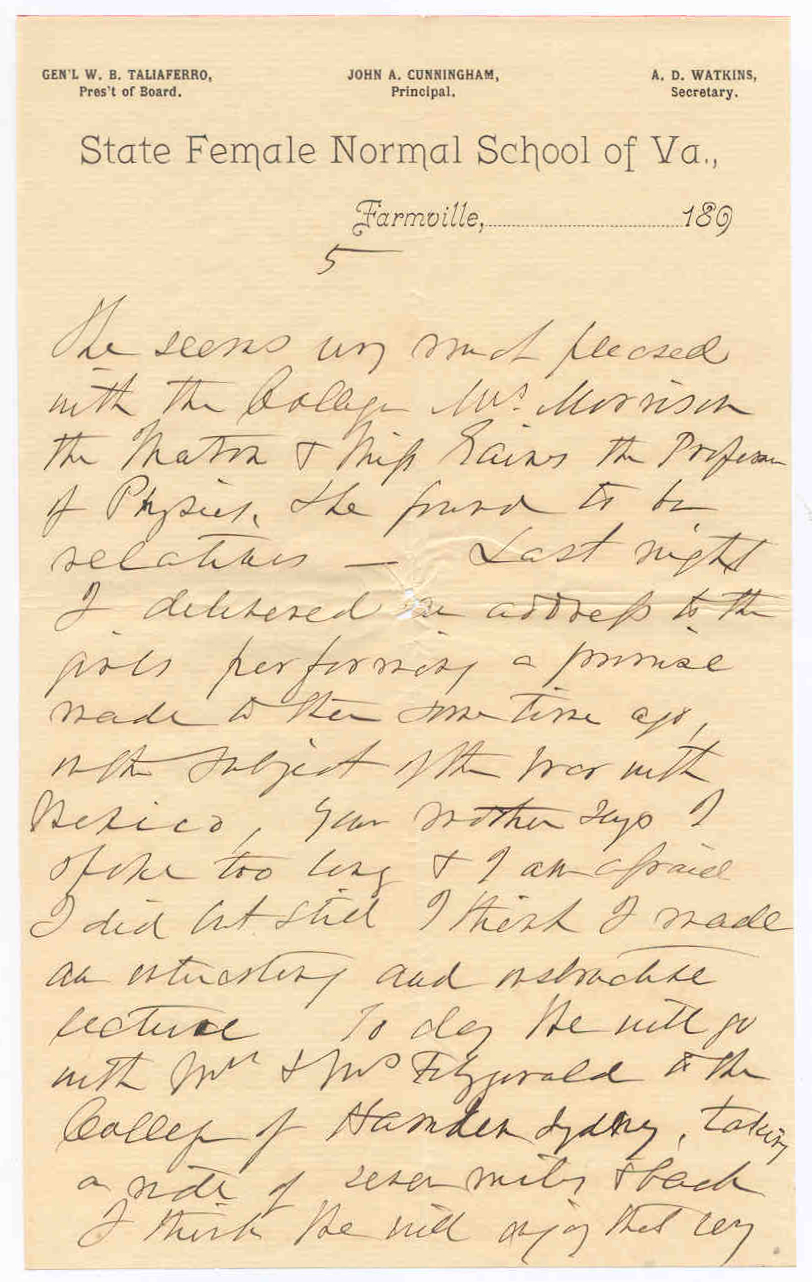 GEN'L W. B. TALIAFERRO,
Pres't of Board.
JOHN A. CUNNINGHAM,
Principal.
A. D. WATKINS,
Secretary.
State Female Normal School of Va.,
Farmville, 189
5
She seems very much pleased
with the College Mrs. Morrison
the Matron & Miss Gaines the Professor
of Physics, she found to be
relatives — Last night
I delivered an address to the
girls performing a promise
made to them some time ago,
on the subject of the War with
Mexico, Your mother says I
spoke too long & I am afraid
I did but still I think I made
an interesting and instructive
lecture To day she will go
with Mr & Mrs Fitzgerald to the
College of Hamden Sydney, taking
a ride of seven miles & back
I think she will enjoy that very